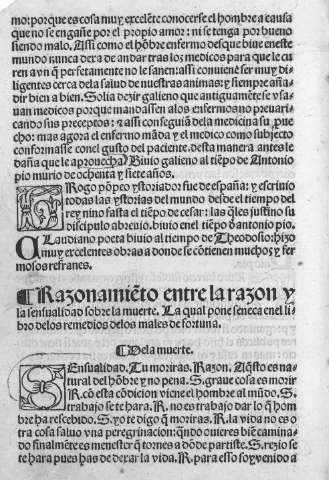 mo: porque es cosa muy excelẽte conocerse el hombre a causa
que no se engañe por el propio amor: ni se tenga por bueno
siendo malo. Assi como el hõbre enfermo desque biue en este
mundo nunca dexa de andar tras los medicos para que le cu
ren avn q̃ perfetamente no le sanen: assi conuiene ser muy di-
ligentes cerca dela salud de nuestras animas: y siempre aña-
dir bien a bien. Solia dezir galieno que antiguamẽte se vsa-
uan medicos porque mandassen alos enfermos no preuari-
cando sus preceptos: & assi conseguiã dela medicina su puecho:
mas agora el enfermo mãda y el medico como subjecto
conformasse con el gusto del paciente. desta manera antes le
daña que le aprouecha. Biuio galieno al tiẽpo de Antonio
pio murio de ochenta y siete años.
TRogo põpeo ystoriador fue de españa: y escriuio
todas las ystorias del mundo desde el tiempo del
rey nino fasta el tiẽpo de cesar: las q̃les justino su
discipulo abreuio. biuio en el tiẽpo d̃ antonio pio.
CLaudiano poeta biuio al tiempo de Theodosio: hizo
muy excelentes obras a donde se cõtienen muchos y fer
mosos refranes.
¶ Razonamiẽto entre la razon y
la sensualidad sobre la muerte. La qual pone seneca en el li
bro delos remedios delos males de fortuna.
¶ De la muerte.
SEnsualidad. Tu moriras. Razon. Aq̃sto es na-
tural del hõbre y no pena. S. graue cosa es morir
R. cõ esta cõdicion viene el hombre al mũdo. S.
trabajo se te hara. R. no es trabajo dar lo q̃ hom
bre ha rescebido. S. yo te digo q̃ moriras. R. la vida no es o
tra cosa saluo vna peregrinacion: qñdo ouieres biẽ camina-
do finalmẽte es menester q̃ tornes a dõde partiste. S. rezio se
te hara pues has de dexar la vida. R. para esso soy venido a